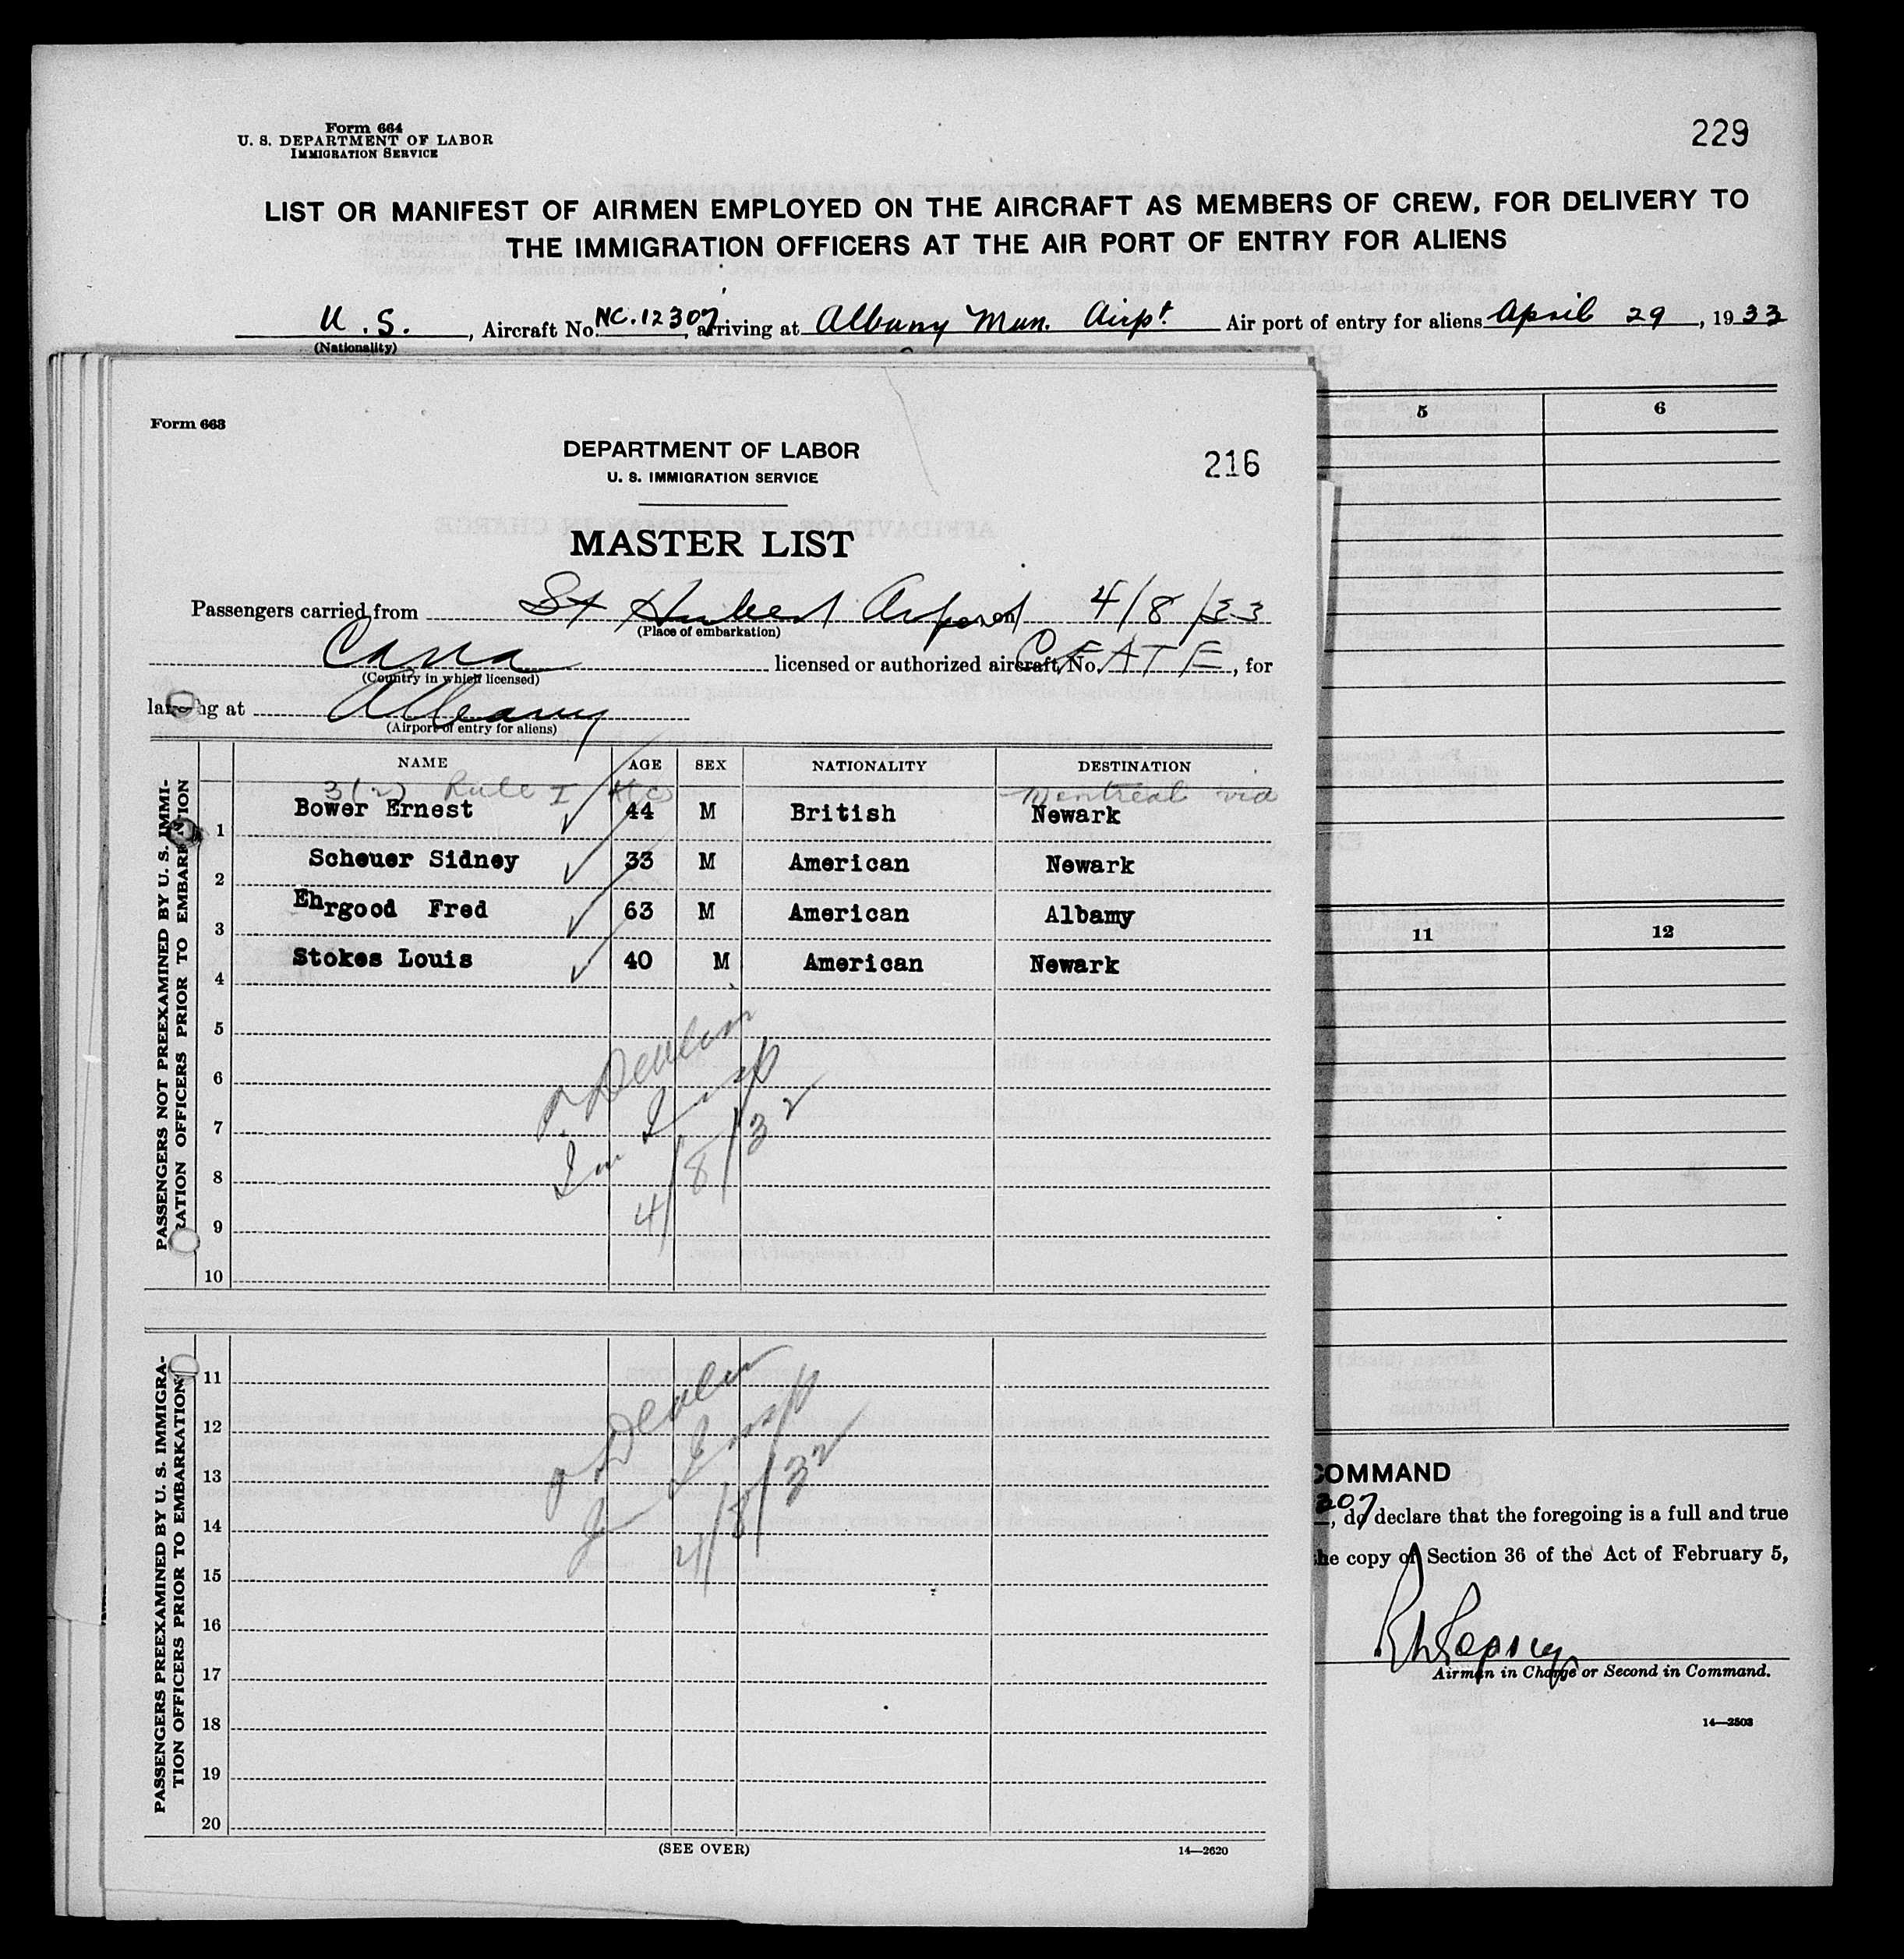 Form 664
U. S. DEPARTMENT OF LABOR
IMMIGRATION SERVICE
229
LIST OR MANIFEST OF AIRMEN EMPLOYED ON THE AIRCRAFT AS MEMBERS OF CREW, FOR DELIVERY TO
THE IMMIGRATION OFFICERS AT THE AIR PORT OF ENTRY FOR ALIENS
U.S., Aircraft No. NC.12307, arriving at Albany Mun. Airpt. Air port of entry for aliens April 29, 1933
(Nationality)
5 6
11 12
COMMAND
307, do declare that the foregoing is a full and true
the copy of Section 36 of the Act of February 5,
Airman in Charge or Second in Command.
14—2503
Form 663
DEPARTMENT OF LABOR
U. S. IMMIGRATION SERVICE
216
MASTER LIST
Passengers carried from St Hubert Airport on 4/8/33
(Place of embarkation)
Cana licensed or authorized aircraft No. CFATE, for
(Country in which licensed)
landing at Albany
(Airport of entry for aliens)
NAME AGE SEX NATIONALITY DESTINATION
3(2) Rule I Montreal via
1 Bower Ernest 44 M British Newark
2 Scheuer Sidney 33 M American Newark
3 Ehrgood Fred 63 M American Albamy
4 Stokes Louis 40 M American Newark
5
6
7
8
9
10
Devlin
Im Insp
4/8/32
PASSENGERS NOT PREEXAMINED BY U. S. IMMI-
RATION OFFICERS PRIOR TO EMBARKATION
11
12
13
14
15
16
17
18
19
20
Devlin
Insp
4/8/32
PASSENGERS PREEXAMINED BY U. S. IMMIGRA-
TION OFFICERS PRIOR TO EMBARKATION
(SEE OVER)
14—2620